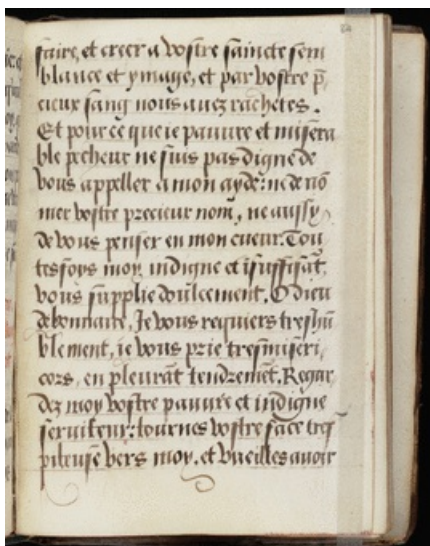 faire, et creer a vostre saincte sem
blance et ymage, et par vostre p̄
cieux sang nous avez rachetes.
Et pour ce que ie pauure et misera
ble pecheur ne suis pas digne de
vous appeller a mon ayde: ne de nō
mer vostre precieux nom, ne aussy
de vous penser en mon cueur. Tou
tesfoys moy indigne et īsuffisāt,
vous supplie doulcement. O dieu
debonnaire, Je vous requiers treshū
blement, ie vous prie tresmiseri
cors, en pleurāt tendremēt. Regar
dez moy vostre pauure et indigne
serviteur: tournes vostre face tres
piteuse vers moy. et vueilles avoir